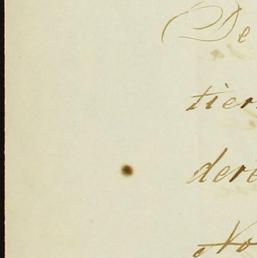 De
tier
dere
No